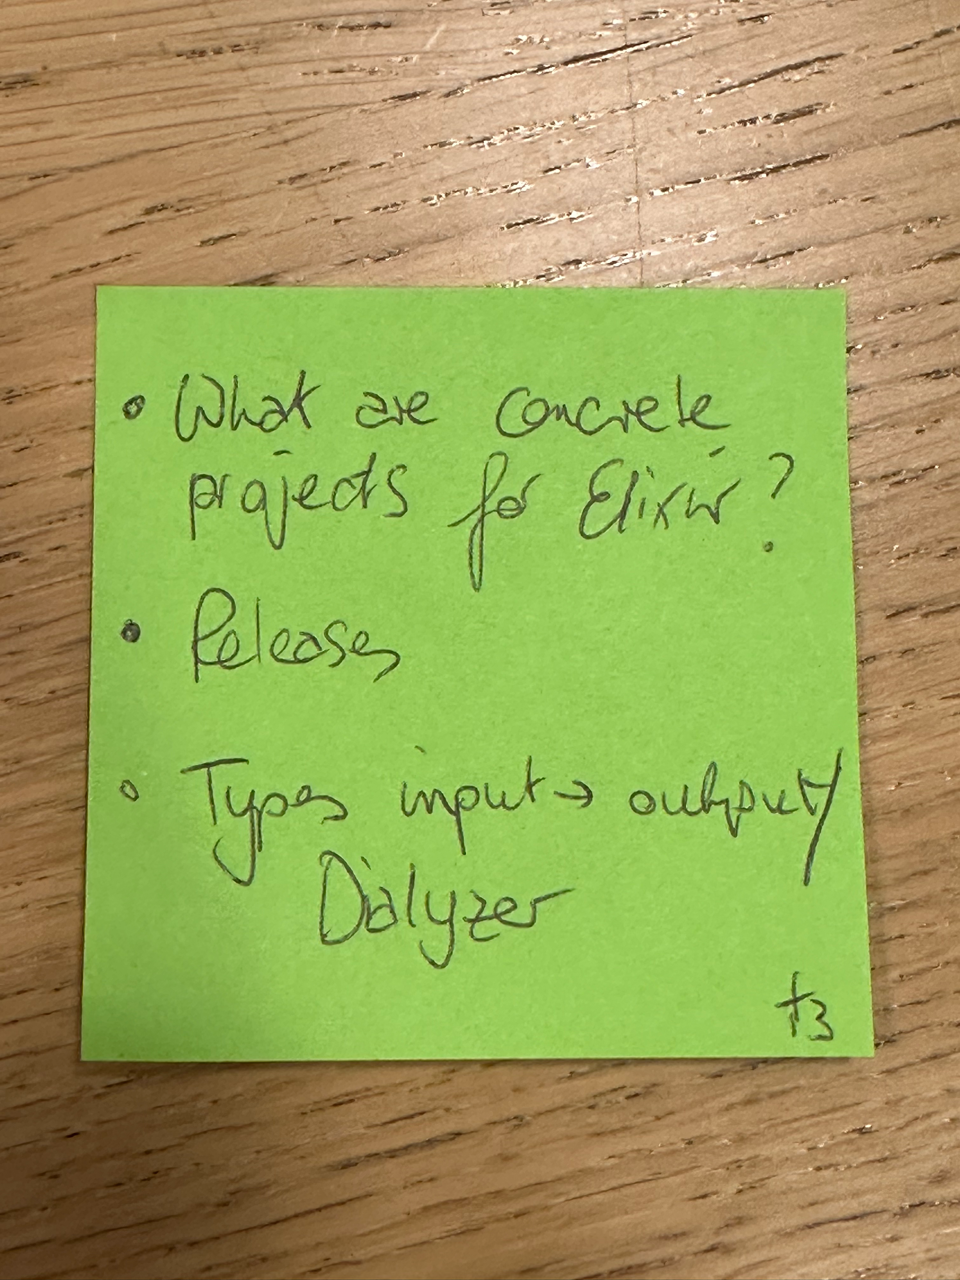 • What are concrete
projects for Elixir?
• Releases
• Types input → output/
Dialyzer
t3